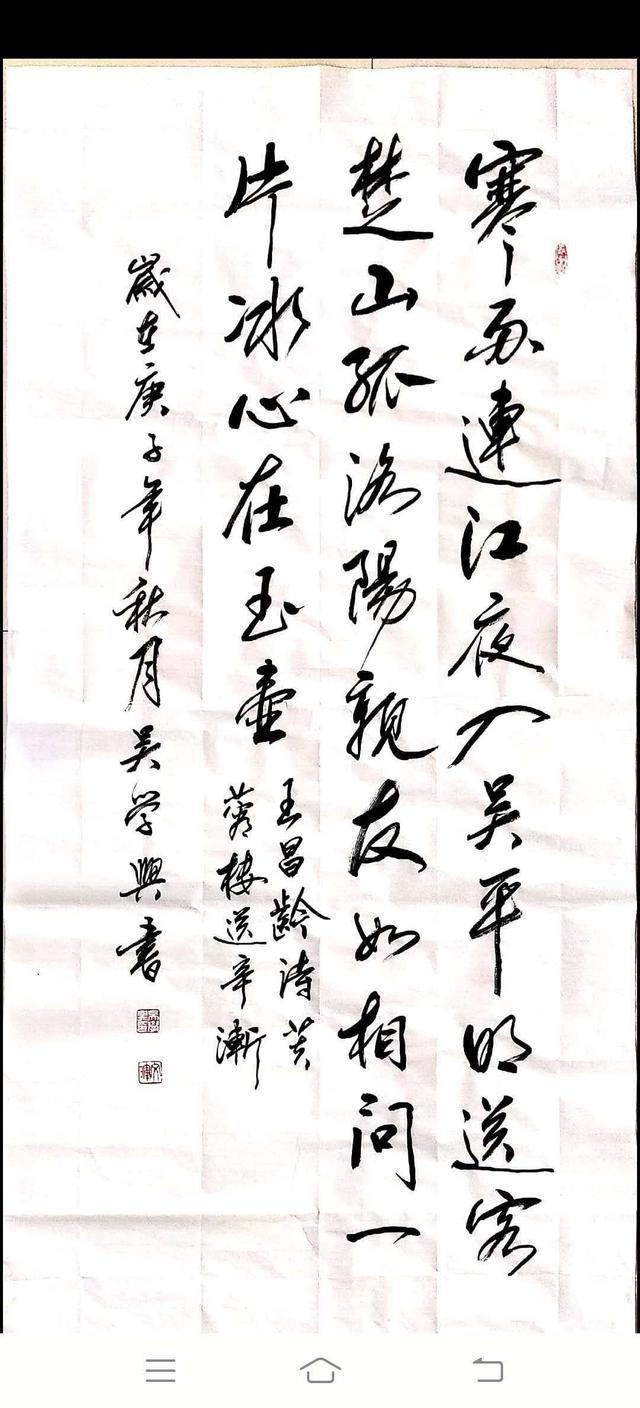 寒雨連江夜入吴平明送客
楚山孤洛陽親友如相问一
片冰心在玉壺
王昌齡诗芙
蓉楼送辛漸
歲在庚子年秋月吴学興書